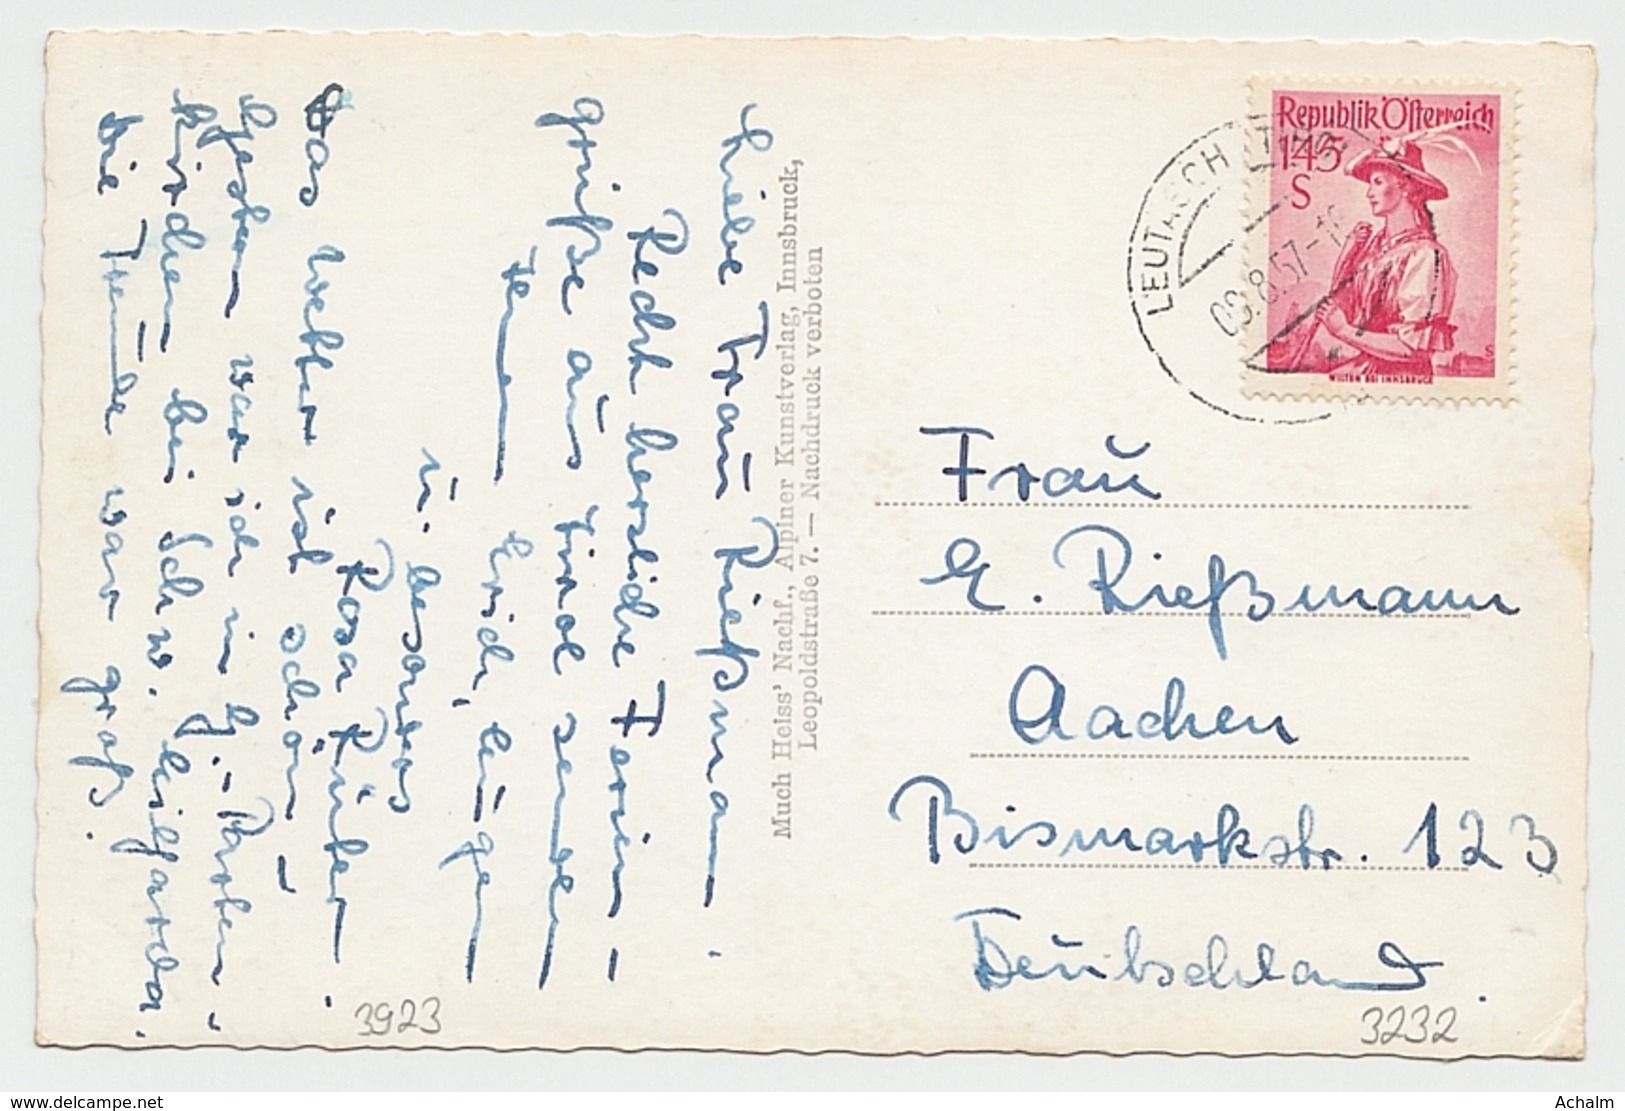 Liebe Frau Rießmann.
Recht herzliche Ferien-
grüße aus Tirol senden
Ihnen Erich, Eugen
u. besonders
Rosa Rüter.
Das Wetter ist schön –
Gestern war ich in G.-Parten-
kirchen bei Schw. Luitgarda.
Die Freude war groß.
Much Heiss' Nachf., Alpiner Kunstverlag, Innsbruck,
Leopoldstraße 7. — Nachdruck verboten
Republik Österreich
1·45
S
WILTEN BEI INNSBRUCK
LEUTASCH (TIROL)
09.8.57-16
Frau
E. Rießmann
Aachen
Bismarkstr. 123
Deutschland.
3923
3232
www.delcampe.net
Achalm